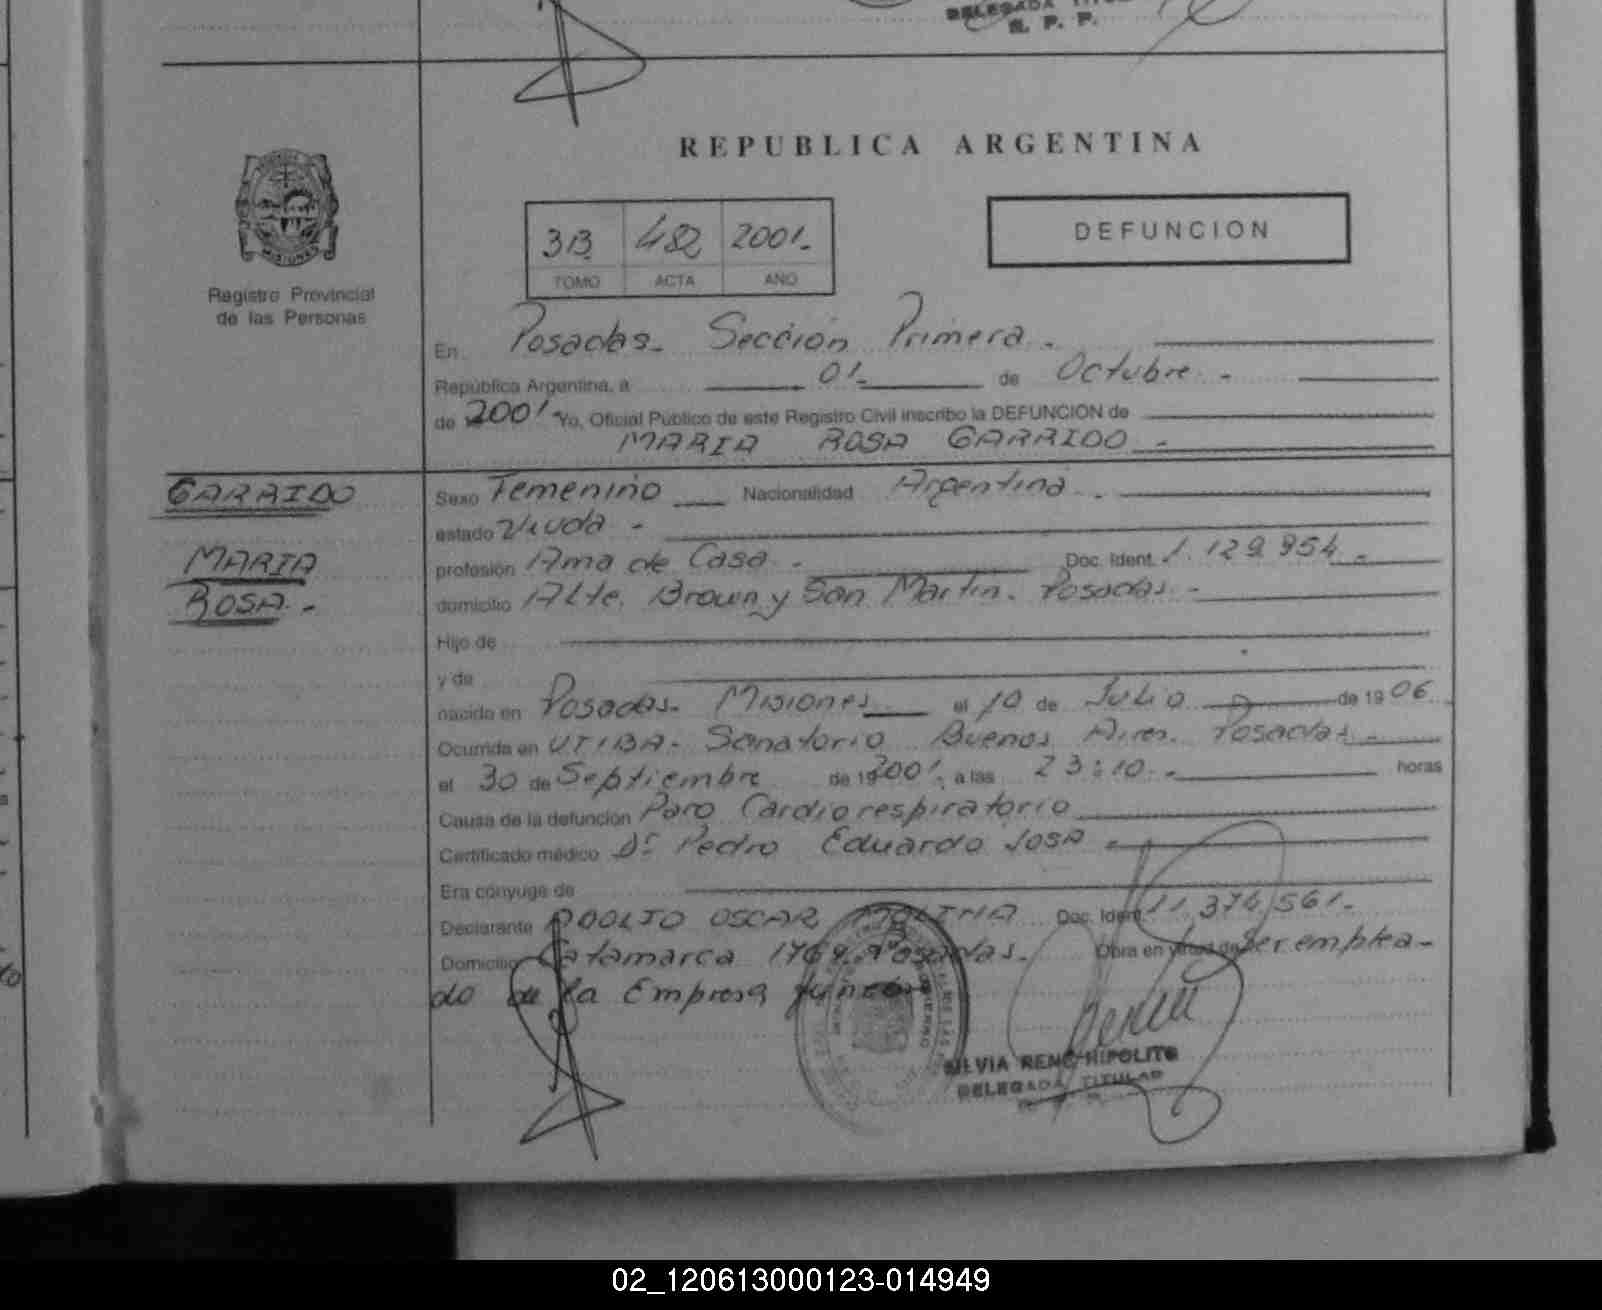 DELEGADA TITULAR
R. P. P.
REPUBLICA ARGENTINA
MISIONES
Registro Provincial
de las Personas
3B 482 2001.-
TOMO ACTA AÑO
DEFUNCION
En Posadas. Sección Primera.-
República Argentina, a 01 de Octubre.-
de 2001 Yo, Oficial Público de este Registro Civil inscribo la DEFUNCION de
MARIA ROSA GARRIDO.-
GARRIDO
MARIA
ROSA.-
Sexo Femenino Nacionalidad Argentina.-
estado Viuda.-
profesión Ama de Casa.- Doc. Ident. 1.129.954.-
domicilio Alte. Brown y San Martin. Posadas.-
Hijo de
y de
nacido en Posadas. Misiones el 10 de Julio de 1906
Ocurrida en UTIBA. Sanatorio Buenos Aires. Posadas.-
el 30 de Septiembre de 2001. a las 23:10.- horas
Causa de la defunción Paro Cardiorespiratorio
Certificado médico Dr. Pedro Eduardo Sosa.-
Era cónyuge de
Declarante ADOLFO OSCAR MOLINA Doc. Ident. 11.374.561.-
Domicilio Catamarca 1769 Posadas. Obra en virtud de Ser emplea-
do de la Empresa
SILVIA RENE HIPOLITO
DELEGADA TITULAR
02_120613000123-014949